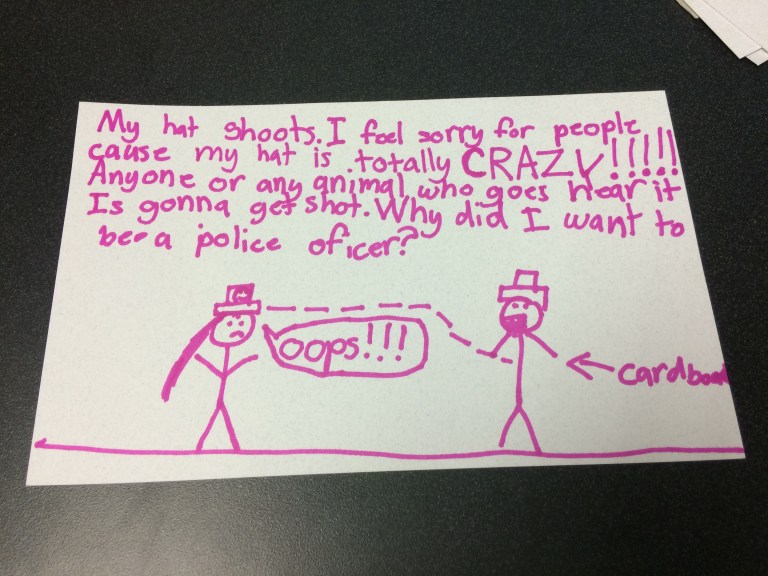 My hat shoots. I feel sorry for people
cause my hat is totally CRAZY!!!!!
Anyone or any animal who goes near it
Is gonna get shot. Why did I want to
be a police oficer?
oops!!!
cardboad